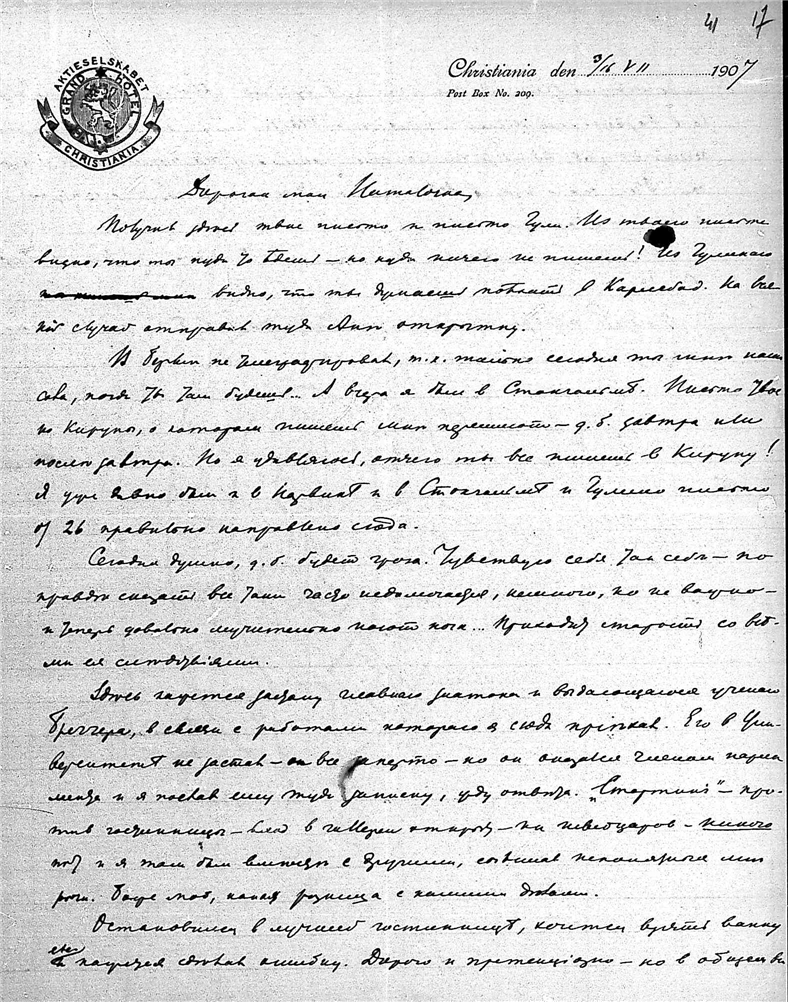 41 17
AKTIESELSKABET
GRAND HOTEL
CHRISTIANIA.
Christiania den 3/16 VII 1907
Post Box No. 209.
Дорогая моя Наталочка,
Получил здесь твое письмо и письмо Гули. Из твоего письма
видно, что ты куда то ѣдешь – но куда ничего не пишешь! Из Гулинаго
видно, что ты думаешь поѣхать в Карлсбад. На вся-
кій случай отправил туда Ане открытку.
В Берген не телеграфировал, т. к. только сегодня ты мнѣ
когда ты там будешь... А вчера я был в Стокгольмѣ. Письмо твое
из Кируны, о котором пишешь мнѣ перешлют – д. б. завтра или
послѣ завтра. Но я удивляюсь, отчего ты все пишешь в Кируну!
Я уже давно был и в Нарвикѣ и в Стокгольмѣ и Гулино письмо
от 26 правильно направлено сюда.
Сегодня душно, д. б. будет гроза. Чувствую себя так себѣ – по
правдѣ сказать все таки часто недомогается, немного, но не важно –
и теперь довольно мучительно ноют ноги... Приходит старость со всѣ-
ми ея слѣдствіями.
Здѣсь кажется застану главнаго знатока и выдающагося ученаго
Брёггера, в связи с работами котораго я сюда пріѣхал. Его в Уни-
верситетѣ не застал – он все заперто – но он оказался членом парла-
мента и я послал ему туда записку, жду отвѣта. „Стортинг" – про-
тив гостинницы – вход в галлереи открыт – ни швейцаров – никого
нѣт и я там был вмѣстѣ с другими, слышал непонятныя мнѣ
рѣчи. Боже мой, какая разница с нашими дѣлами.
Остановился в лучшей гостинницѣ, хочется взять ванну
кажется сдѣлал ошибку. Дорого и претенціозно – но в общем